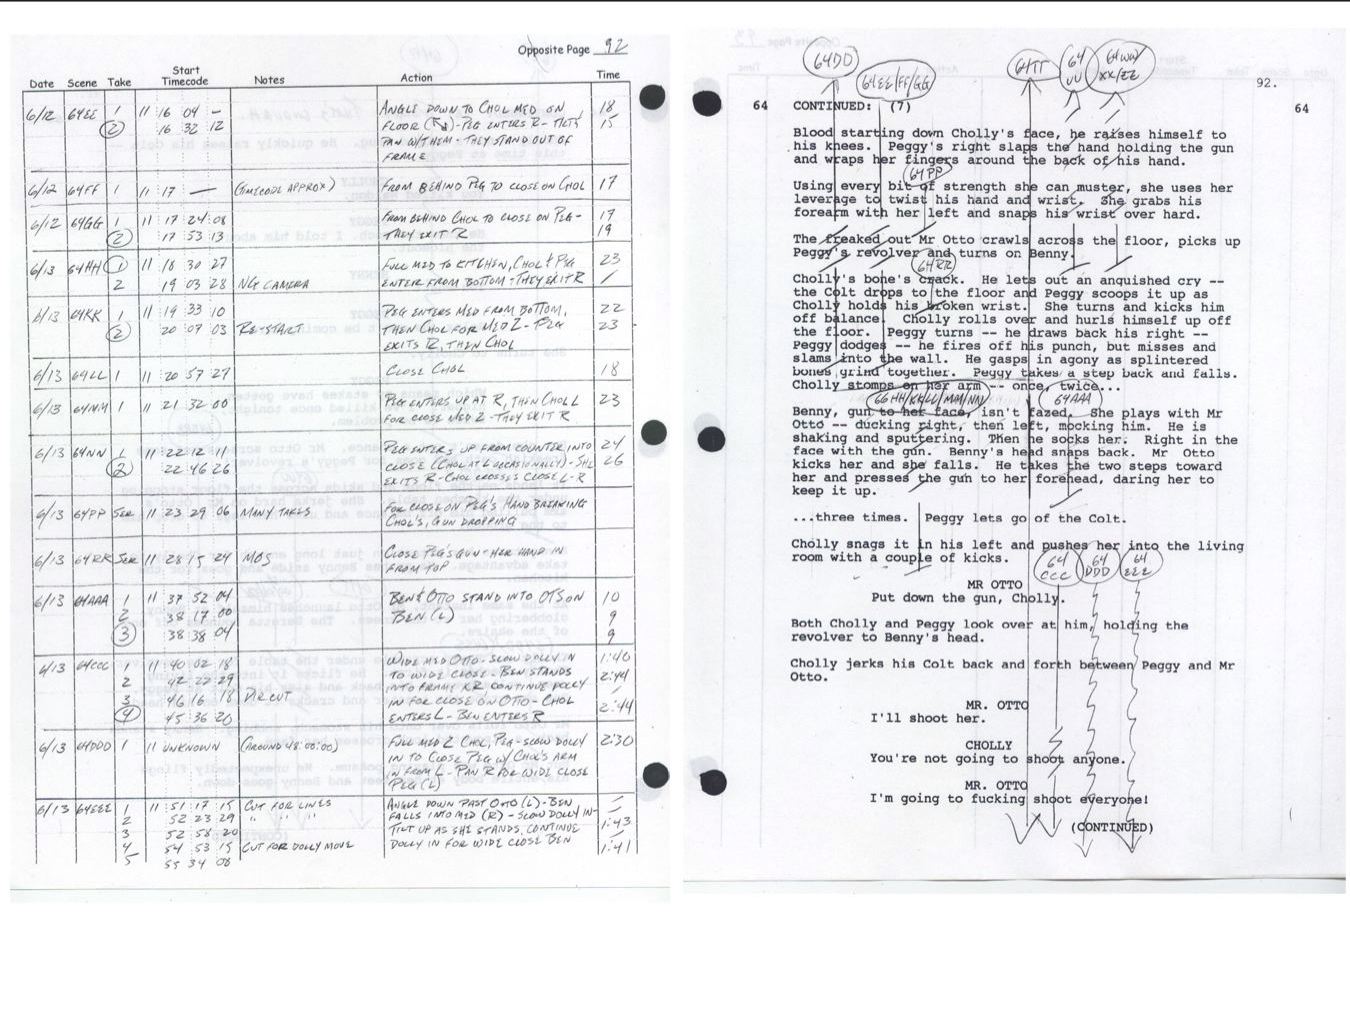 Opposite Page 92
Date Scene Take Start Timecode Notes Action Time
6/12 64EE 1 11 16 04 — ANGLE DOWN TO CHOL MED ON 18
(2) 16 32 12 FLOOR - PEG ENTERS R - TILTS 15
PAN W/THEM - THEY STAND OUT OF
FRAME
6/12 64FF 1 11 17 — (TIMECODE APPROX) FROM BEHIND PEG TO CLOSE ON CHOL 17
6/12 64GG 1 11 17 24 08 FROM BEHIND CHOL TO CLOSE ON PEG - 17
(2) 17 53 13 THEY EXIT R 19
6/13 64HH (1) 11 18 30 27 FULL MED TO KITCHEN, CHOL & PEG 23
2 19 03 28 NG CAMERA ENTER FROM BOTTOM - THEY EXIT R /
6/13 64KK 1 11 19 33 10 PEG ENTERS MED FROM BOTTOM, 22
(2) 20 07 03 RE-START THEN CHOL FOR MED 2 - PEG 23
EXITS R, THEN CHOL
6/13 64LL 1 11 20 57 27 CLOSE CHOL 18
6/13 64MM 1 11 21 32 00 PEG ENTERS UP AT R, THEN CHOL L 23
FOR CLOSE MED 2 - THEY EXIT R
6/13 64NN 1 11 22 12 11 PEG ENTERS UP FROM COUNTER INTO 24
(2) 22 46 26 CLOSE (CHOL AT L OCCASIONALLY) - SHE 26
EXITS R - CHOL CROSSES CLOSE L-R
6/13 64PP SER 11 23 29 06 MANY TAKES FOR CLOSE ON PEG'S HAND BREAKING
CHOL'S, GUN DROPPING
6/13 64RR SER 11 28 15 24 MOS CLOSE PEG'S GUN - HER HAND IN
FROM TOP
6/13 64AAA 1 11 37 52 04 BEN & OTTO STAND INTO OTS ON 10
2 38 17 00 BEN (L) 9
(3) 38 38 04 9
6/13 64CCC 1 11 40 02 18 WIDE MED OTTO - SLOW DOLLY IN 1:40
2 42 22 29 TO WIDE CLOSE - BEN STANDS 2:44
3 46 16 18 DIR CUT INTO FRAME XR CONTINUE DOLLY /
(4) 45 36 20 IN FOR CLOSE ON OTTO - CHOL 2:44
ENTERS L - BEN ENTERS R
6/13 64DDD 1 11 UNKNOWN (AROUND 48:00:00) FULL MED 2 CHOL, PEG - SLOW DOLLY 2:30
IN TO CLOSE PEG W/ CHOL'S ARM
IN FROM L - PAN R FOR WIDE CLOSE
PEG (L)
6/13 64EEE 1 11 51 17 15 CUT FOR LINES ANGLE DOWN PAST OTTO (L) - BEN /
2 52 23 29 " " FALLS INTO MED (R) - SLOW DOLLY IN - /
3 52 58 20 TILT UP AS SHE STANDS. CONTINUE 1:43
4 54 53 15 CUT FOR DOLLY MOVE DOLLY IN FOR WIDE CLOSE BEN /
5 55 34 08 1:41
64DD 64EE/FF/GG 64TT 64 UU 64WW/ XX/ZZ
92.
64 CONTINUED: (7) 64
Blood starting down Cholly's face, he raises himself to
his knees. Peggy's right slaps the hand holding the gun
and wraps her fingers around the back of his hand.
64PP
Using every bit of strength she can muster, she uses her
leverage to twist his hand and wrist. She grabs his
forearm with her left and snaps his wrist over hard.
The freaked out Mr Otto crawls across the floor, picks up
Peggy's revolver and turns on Benny.
64RR
Cholly's bone's crack. He lets out an anquished cry --
the Colt drops to the floor and Peggy scoops it up as
Cholly holds his broken wrist. She turns and kicks him
off balance. Cholly rolls over and hurls himself up off
the floor. Peggy turns -- he draws back his right --
Peggy dodges -- he fires off his punch, but misses and
slams into the wall. He gasps in agony as splintered
bones grind together. Peggy takes a step back and falls.
Cholly stomps on her arm -- once, twice...
66HH/KK/LL/MM/NN 64AAA
Benny, gun to her face, isn't fazed. She plays with Mr
Otto -- ducking right, then left, mocking him. He is
shaking and sputtering. Then he socks her. Right in the
face with the gun. Benny's head snaps back. Mr Otto
kicks her and she falls. He takes the two steps toward
her and presses the gun to her forehead, daring her to
keep it up.
...three times. Peggy lets go of the Colt.
Cholly snags it in his left and pushes her into the living
room with a couple of kicks.
64 CCC 64 DDD 64 EEE
MR OTTO
Put down the gun, Cholly.
Both Cholly and Peggy look over at him, holding the
revolver to Benny's head.
Cholly jerks his Colt back and forth between Peggy and Mr
Otto.
MR. OTTO
I'll shoot her.
CHOLLY
You're not going to shoot anyone.
MR. OTTO
I'm going to fucking shoot everyone!
(CONTINUED)